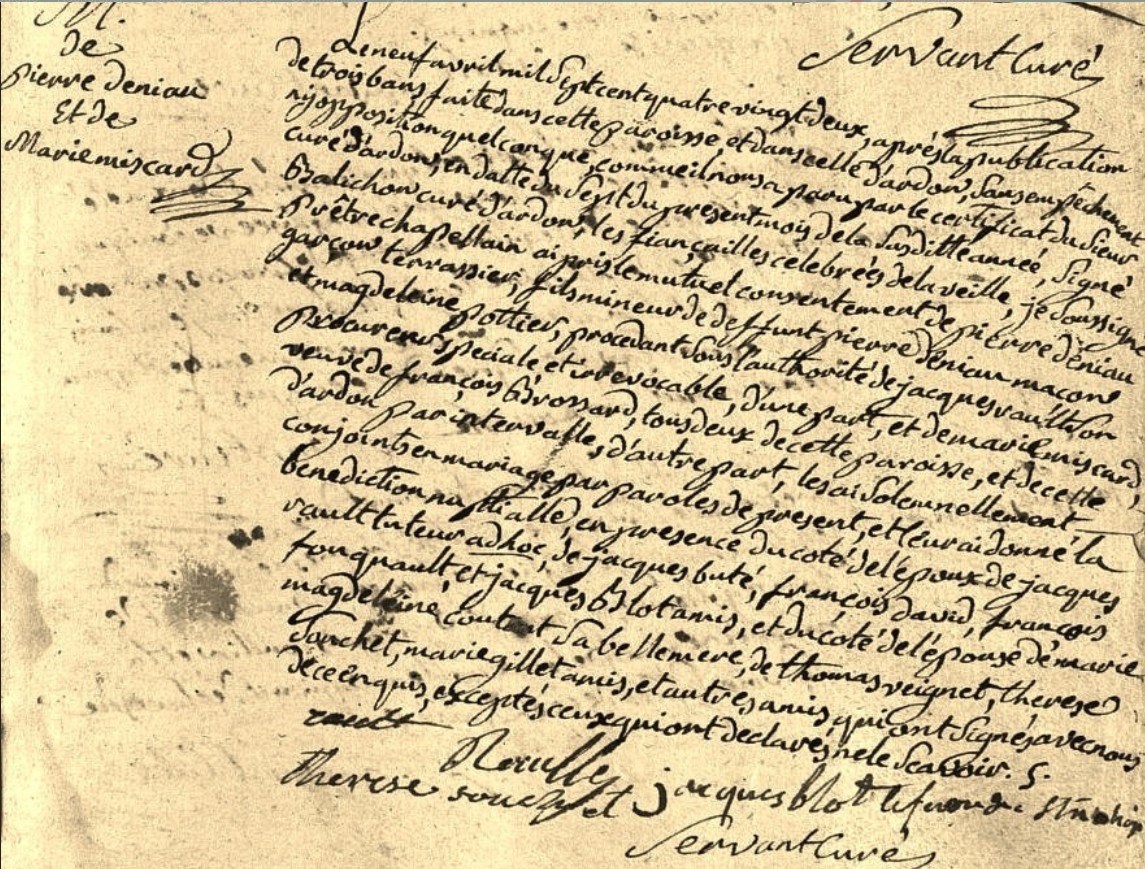 M.
de
pierre deniau
Et de
Marie miscard
Servant Curé
Le neuf avril mil Sept cent quatre vingt deux, après la publication
de trois bans faite dans cette paroisse, et dans celle d'ardon, Sans empêchement
ny opposition quelconque, comme il nous a paru par le certificat du Sieur
curé d'ardon, en datte du Sept du present mois de la Susditte année, Signé
Balichon curé d'ardon, les fiançailles celebrées de la veille, je Soussigné
prêtre chapellain ai pris le mutuel consentement de pierre déniau
garçon terrassier, fils mineur de deffunt pierre déniau maçon
et magdeleine pottier, procedant Sous l'authorité de jacques rault Son
procureur Speciale et irrevocable, d'une part, et de marie miscard,
veuve de françois Brossard, tous deux de cette paroisse, et de cette
d'ardon par intervalle, d'autre part, les ai Solemnellement
conjoints en mariage par paroles de present, et leur ai donné la
benediction nuptialle, en presence du coté de l'époux de jacques
rault tuteur ad hoc, de jacques buté, françois david, françois
fouqnault, et jacques Blot amis, et du coté de l'épouse de marie
magdeleine coutant Sa belle mere, de thomas veignet, therese
Souchet, marie gillet amis, et autres amis, qui ont Signés avec nous
de ce enquis, exceptés ceux qui ont declarés ne le Scavoir. S.
rault
Therese souchet jacques blot
Servant Curé